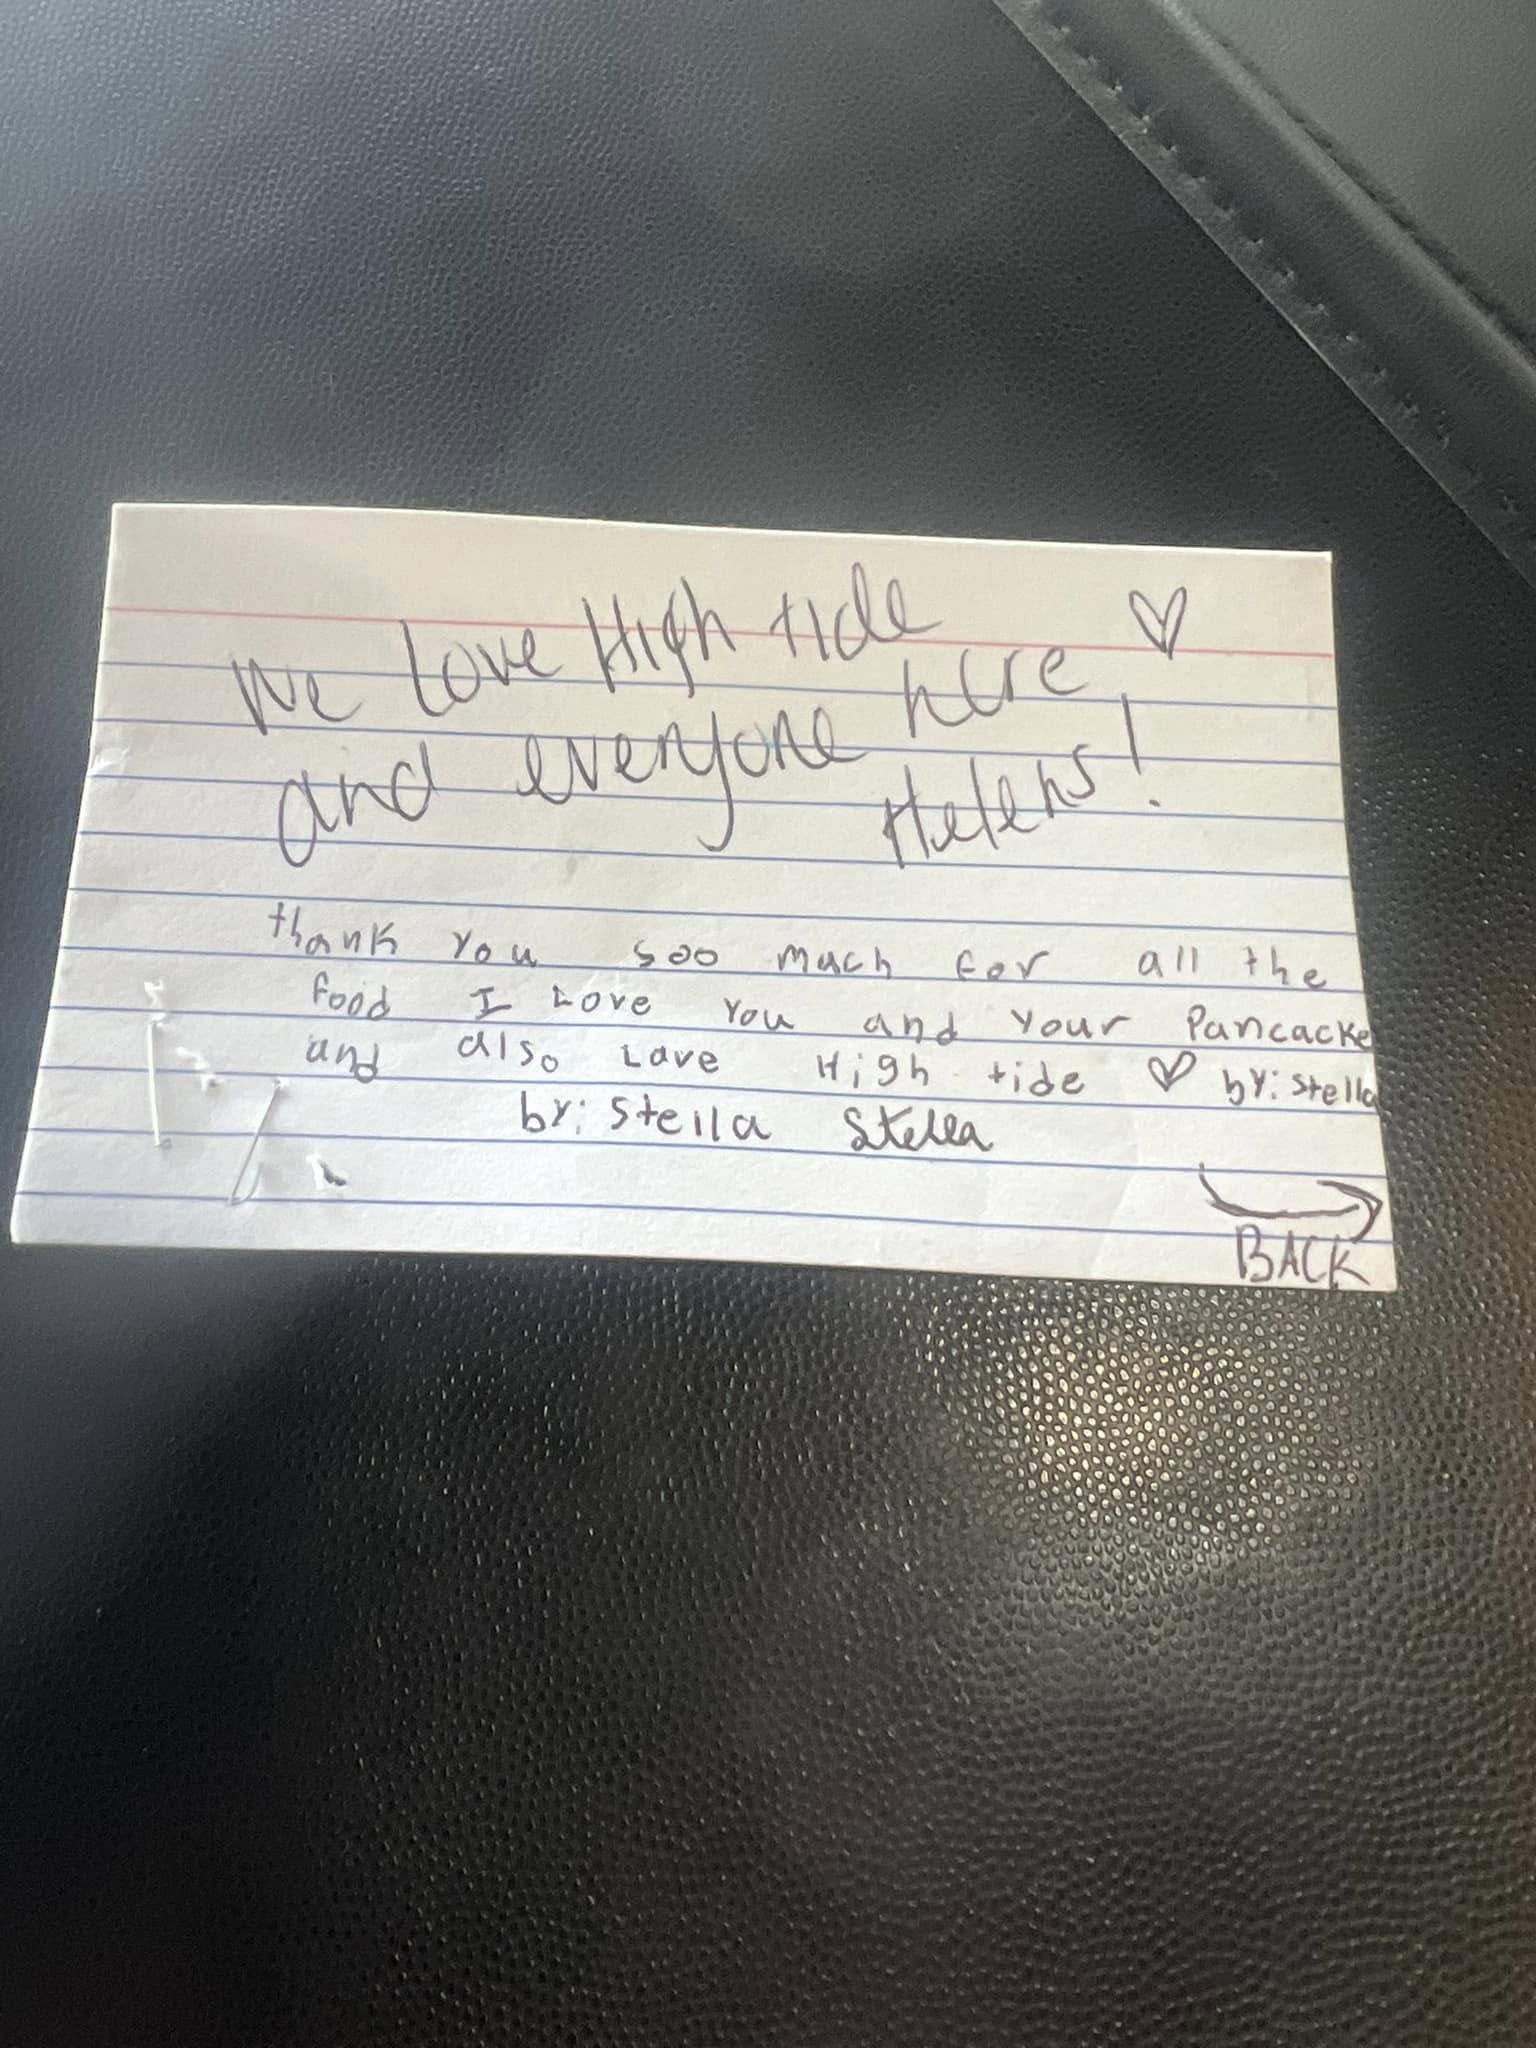 We Love High tide ♡
and everyone here
Helens!
thank you soo much for all the
food I Love you and your Pancacke
and also Love High tide ♡ by: stella
by: stella Stella
BACK